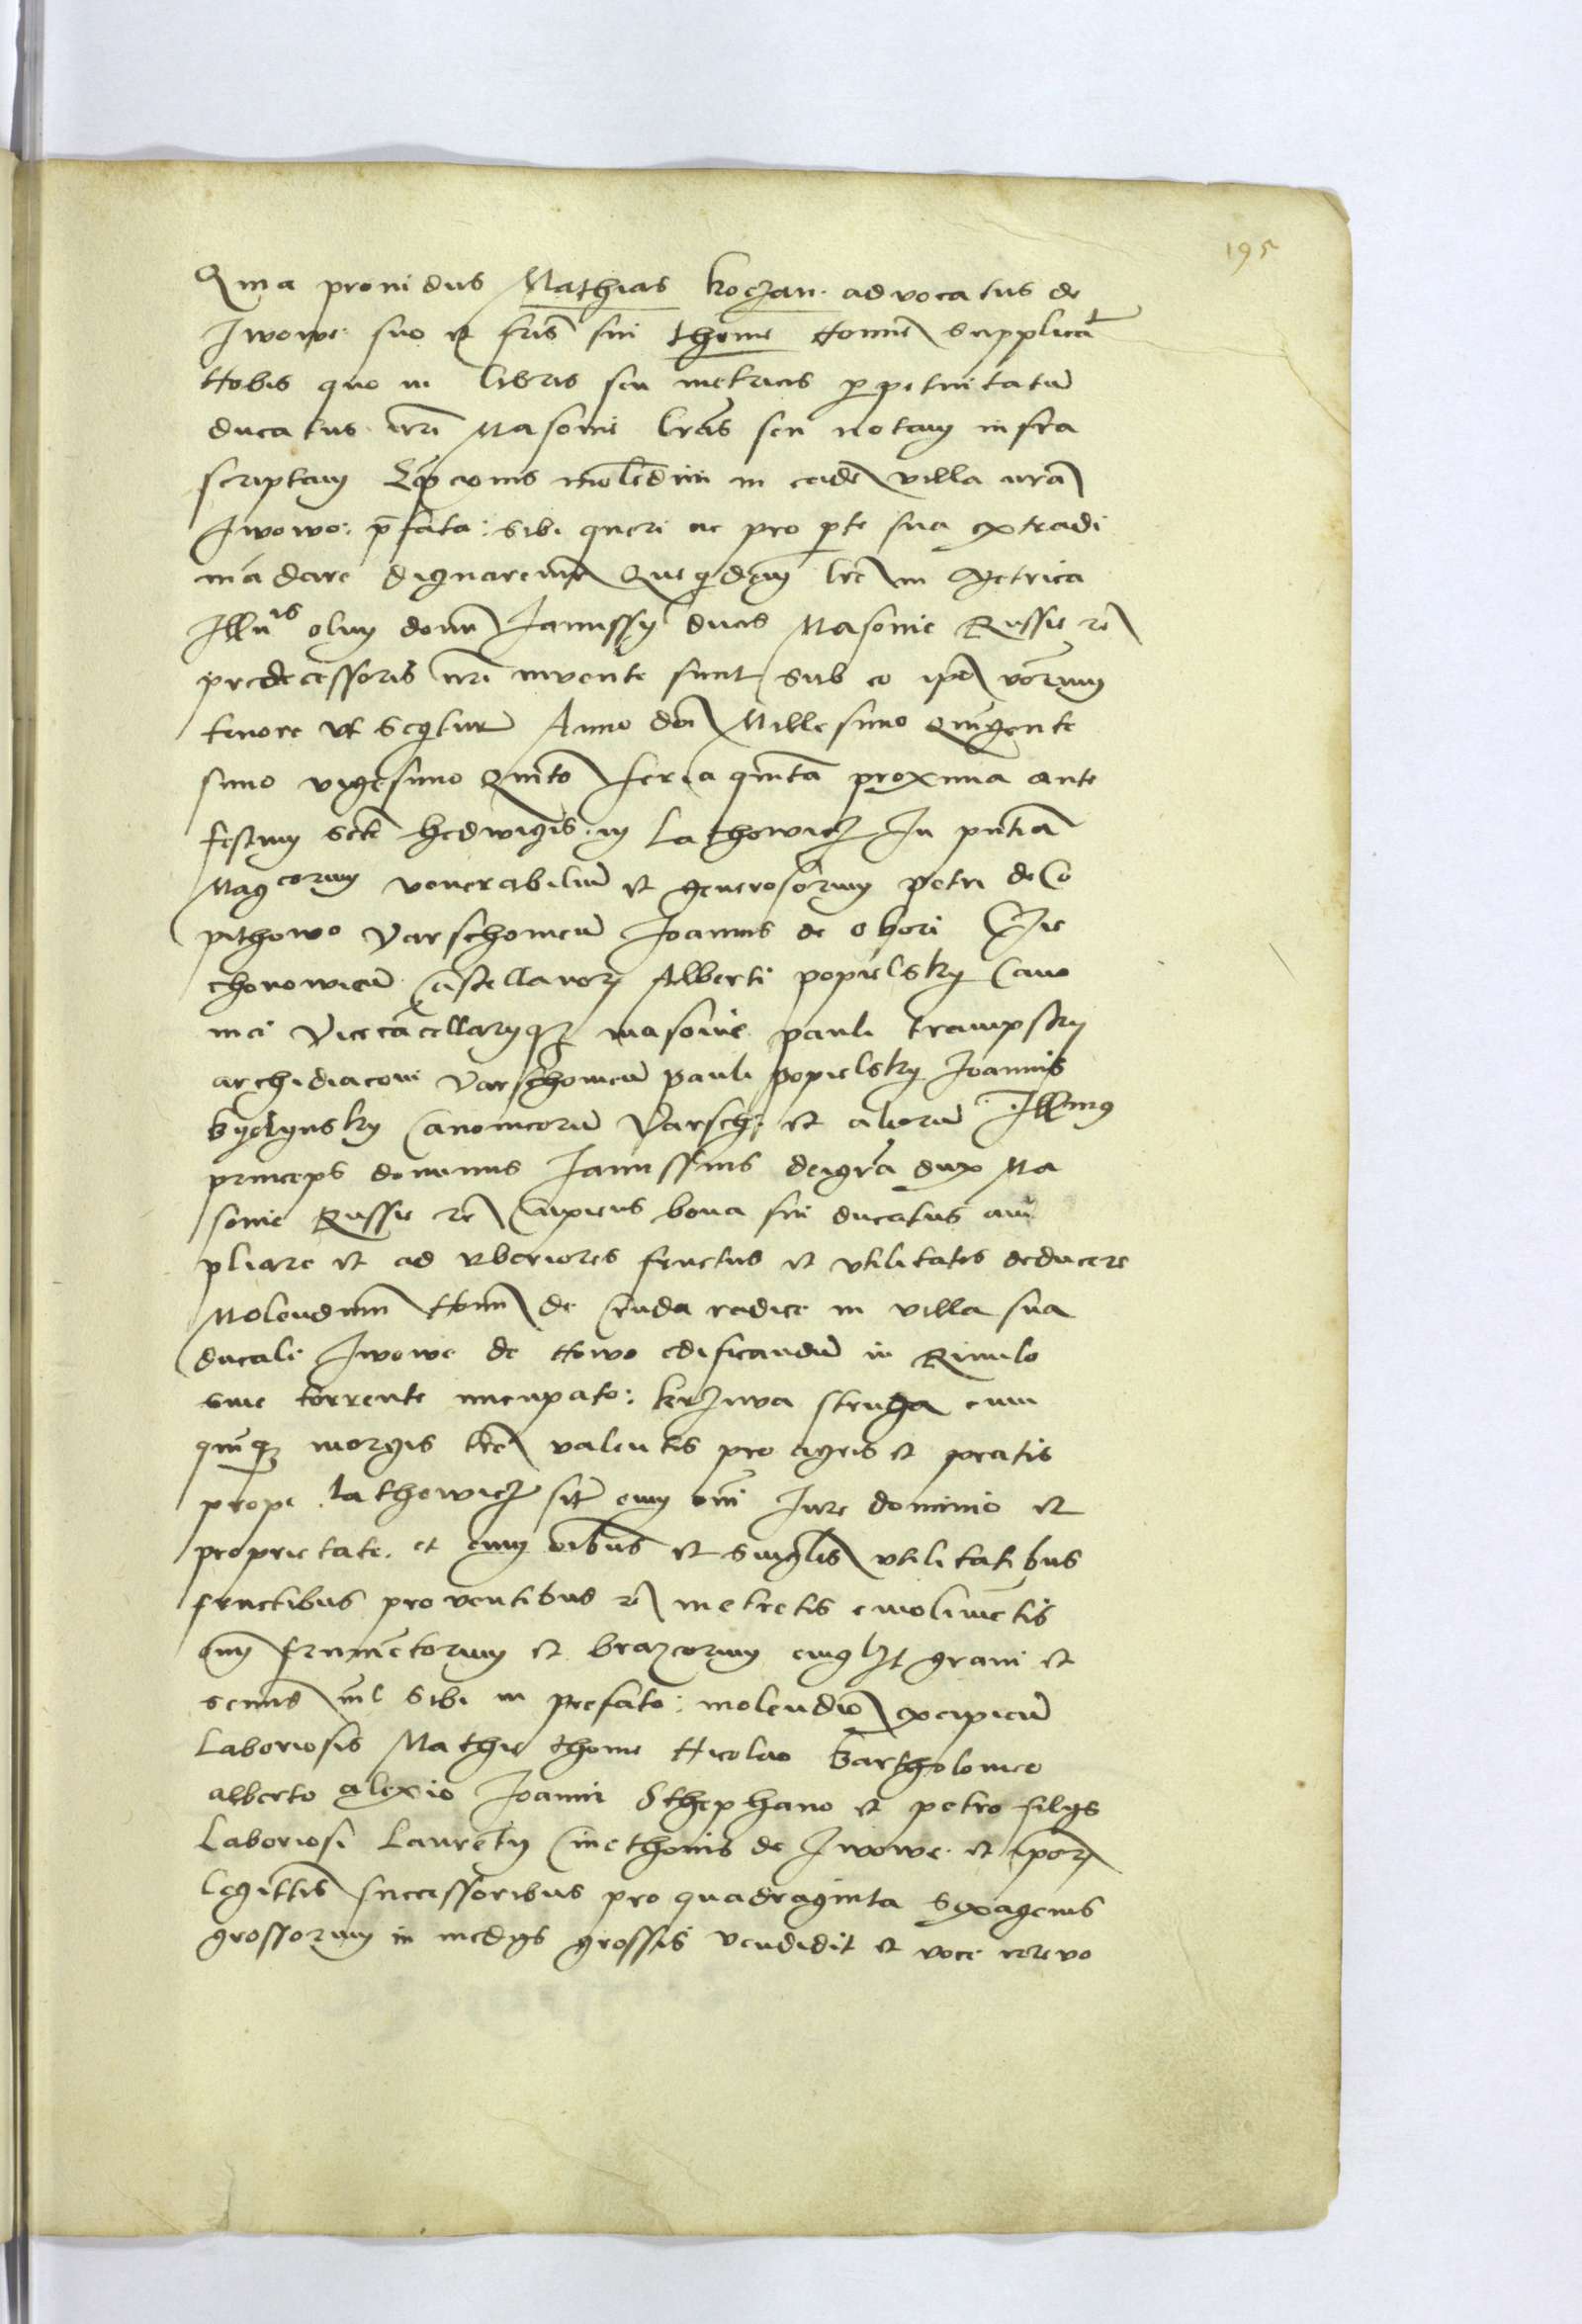 195
Quia prouidus Mathias koczan advocatus de
Iwowe suo et fr̄is sui thome Nomīe supplicāt
Nobis quo in libris seu metricis ꝑpetuitatū
ducatus nr̄i Masovie lr̄as seu notam infra
scriptam mol̄edini in eadē villa nr̄a
Iwowo: p̄fata: Sibi queri ac pro ꝑte sua extradi
mādare dignaremur Que qdem lr̄e in Metrica
Illu͞is olim domī Ianussy ducis Masovie Russie rē
predecessoris nr̄i invente sunt Sub eo ipō verum
tenore vt Seqtur Anno dn̄i Millesimo Quīgente
simo vigesimo Quīto feria quīta proxima ante
festum Sctē Hedwigis in Lathowicz In pn̄tia
Mag͞corum venerabiliū et generosorum petri de Co
pithowo Varschovieñ Ioannis de obori Cie
chonowieñ Castellanorꝝ Alberti popielsky Cano
nici Vicecācellaryqꝫ masovie pauli trampsky
archidiaconi Varschovieñ pauli popielsky Ioannis
byelynsky Canonicorū Varsch: et aliorū Illm͞us
princeps dominus Ianussius dei gr̄a dux Ma
sovie Russie rē Cupiens bona sui ducatus am
pliare et ad vberiores fructus et vtilitates deducere
Molendinū Novū de Cruda radice in villa sua
ducali Iwowe de Novo edificandū in Riuulo
siue torrente nuncupato: kerzwa struga cum
quīqꝫ morgis valentis pro agris et pratis
prope Lathowicz sitꝫ cum om̄i Iure dominio et
proprietate. et cum om̄ibus et singul̄is vtilitatibus
fructibus proventibus rē metretis emolimētis
om̄ frumētorum et brazeorum cuiusl̄ꝫt grani et
semīs nil Sibi in prefato: molendīo excipieñ
Laboriosis Mathie thome Nicolao Bartholomeo
alberto alexio Ioanni Sthephano et petro filys
Laboriosi Laurēty Cmethonis de Iwowe et ipsorꝝ
legittīs successoribus pro quadraginta Sexagenis
grossorum in medys grossis vendidit et voce rerevo